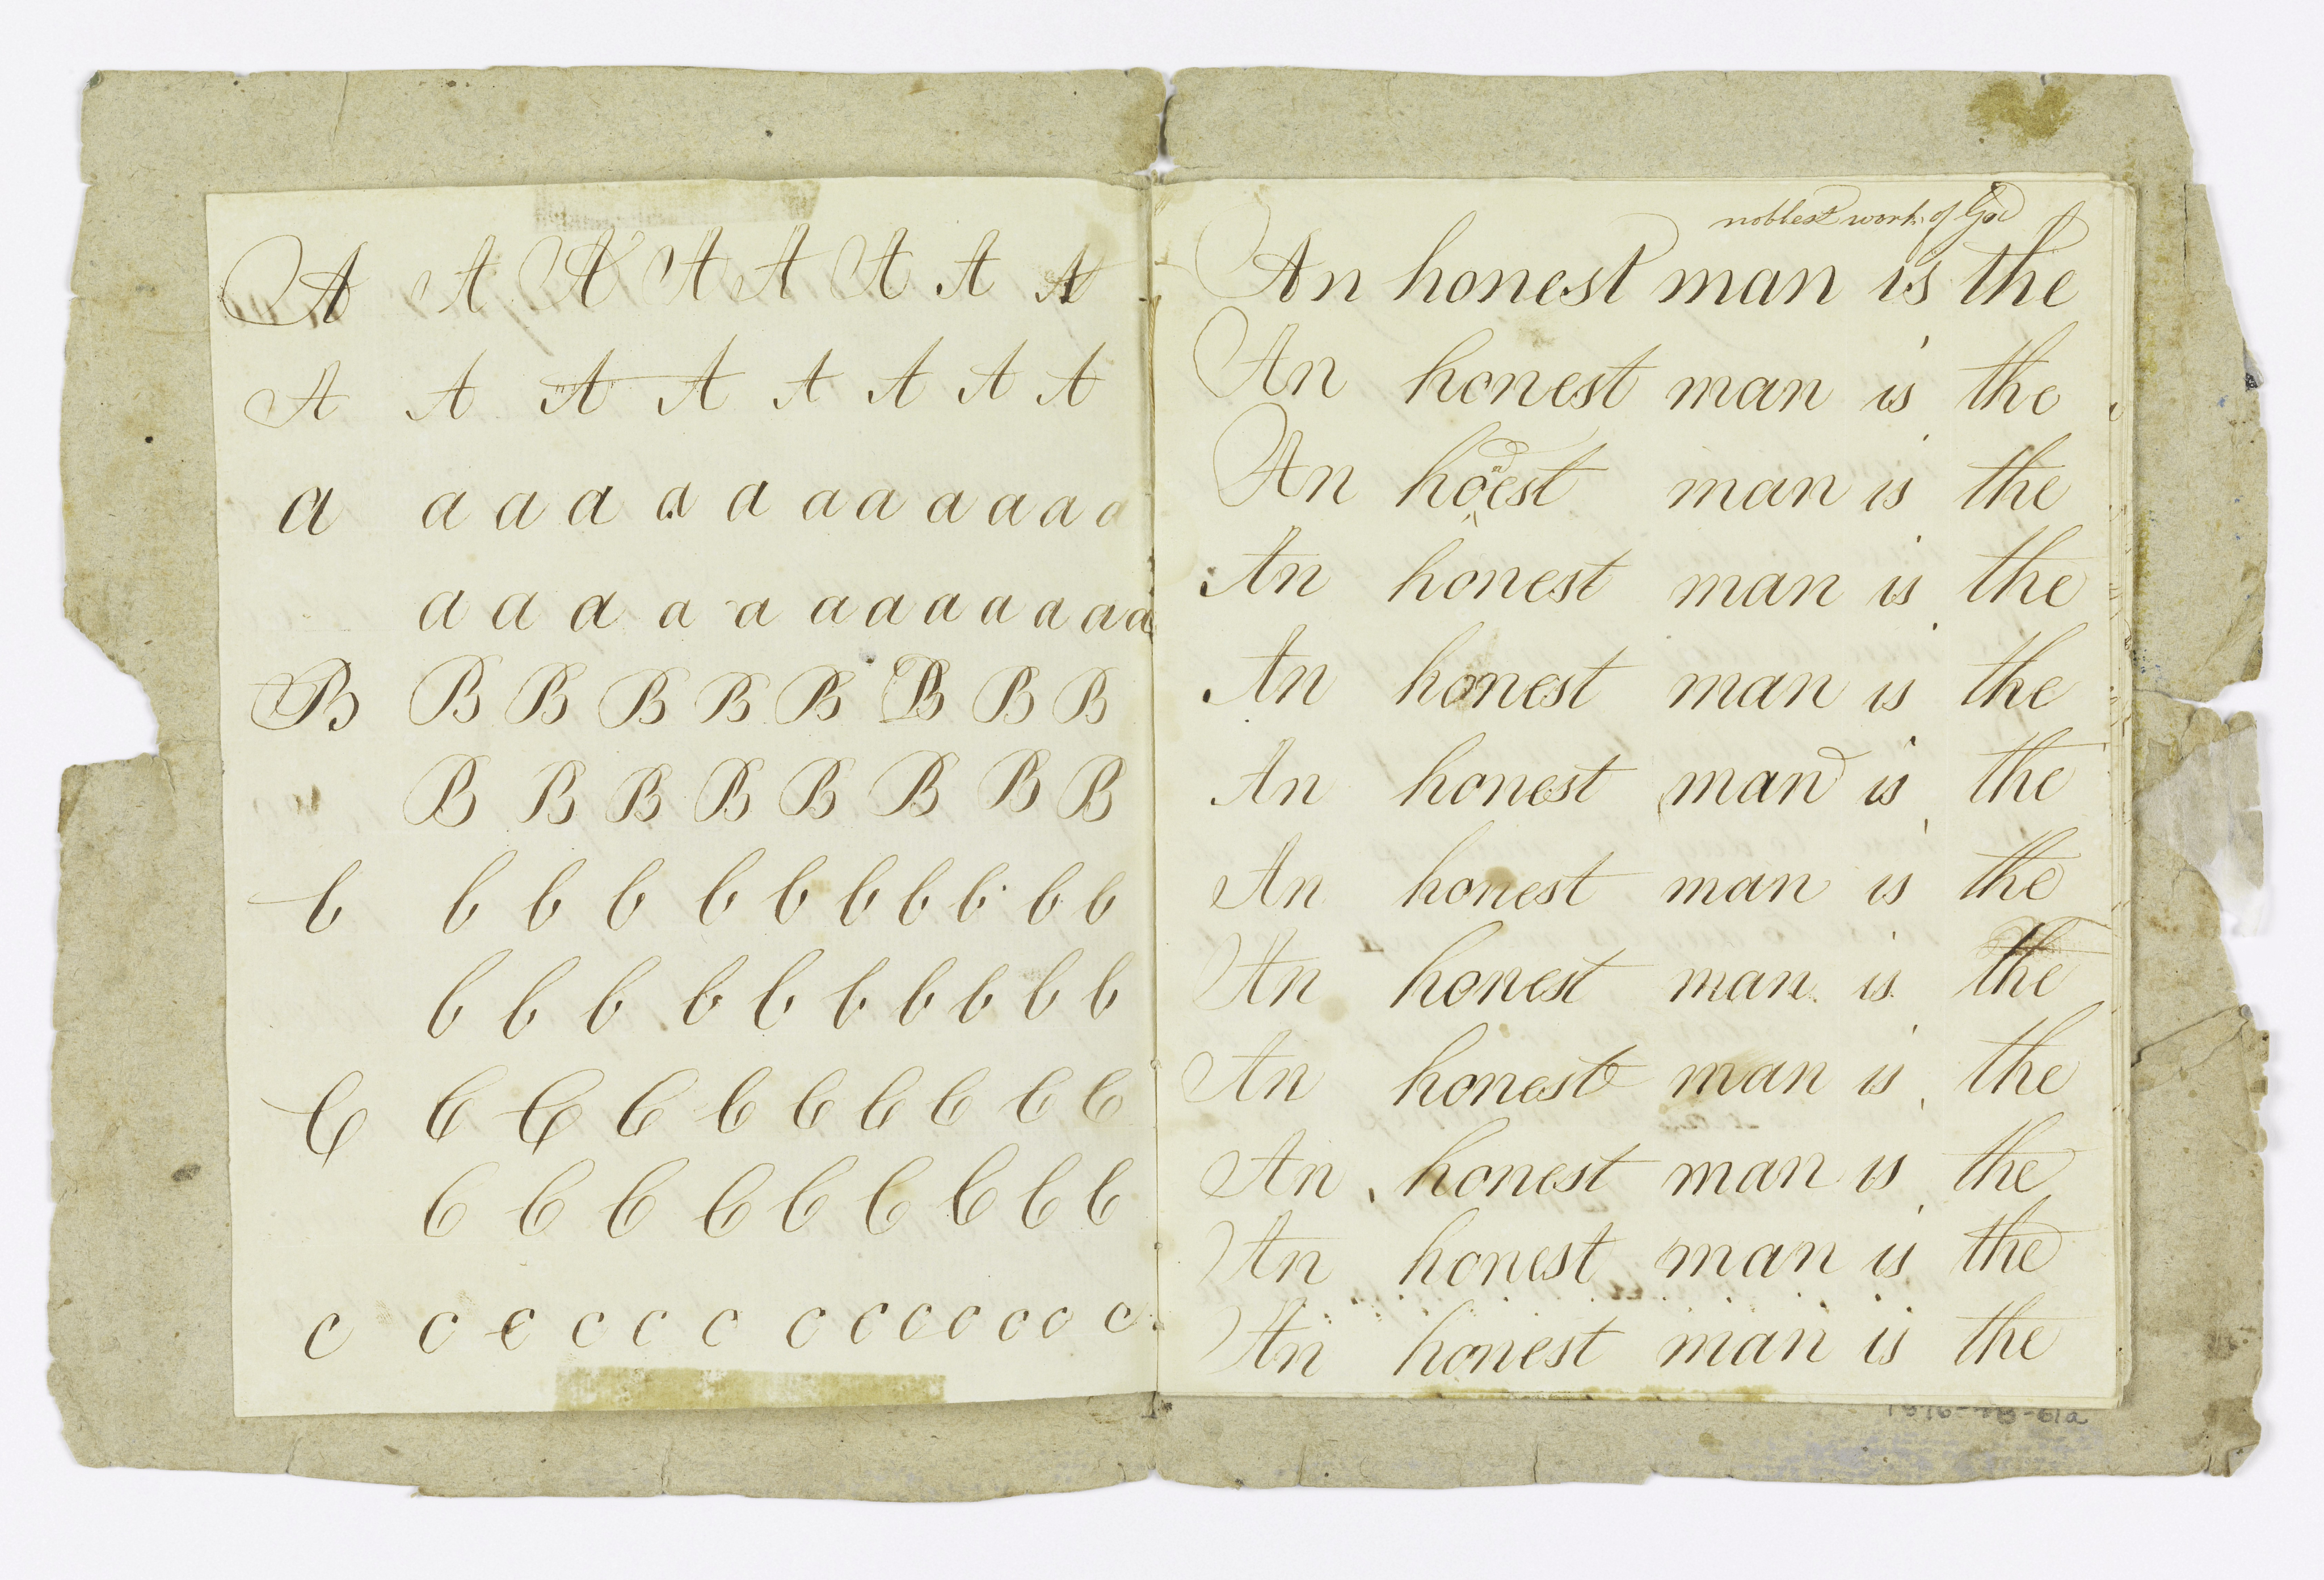 A A A A A A A A
A A A A A A A A
a a a a a a a a a a a a
a a a a a a a a a a a a
B B B B B B B B B
B B B B B B B B
b b b b b b b b b b b
b b b b b b b b b b
C C C C C C C C C C
C C C C C C C C C
c c c c c c c c c c c c c
noblest work of God
An honest man is the
An honest man is the
An honest man is the
An honest man is the
An honest man is the
An honest man is the
An honest man is the
An honest man is the
An honest man is the
An honest man is the
An honest man is the
An honest man is the